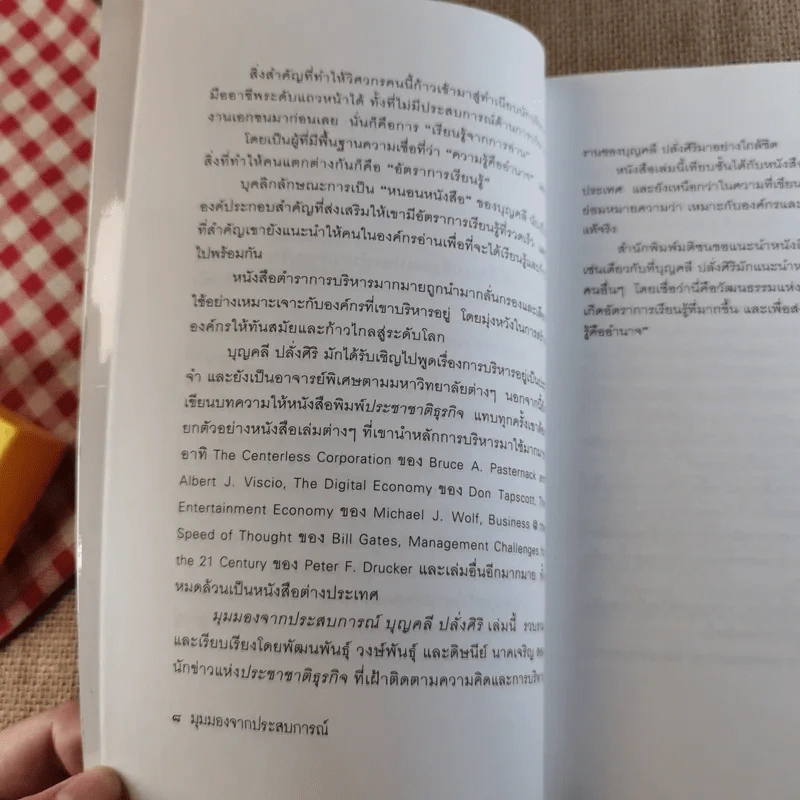 สิ่งสำคัญที่ทำให้วิศวกรคนนี้ก้าวเข้ามาสู่ทำเนียบนัก
มืออาชีพระดับแถวหน้าได้ ทั้งที่ไม่มีประสบการณ์ด้านการ
งานเอกชนมาก่อนเลย นั่นก็คือการ “เรียนรู้จากการอ่าน”
โดยเป็นผู้ที่มีพื้นฐานความเชื่อที่ว่า “ความรู้คืออำนาจ”
สิ่งที่ทำให้คนแตกต่างกันก็คือ “อัตราการเรียนรู้”
บุคลิกลักษณะการเป็น “หนอนหนังสือ” ของบุญคลี
องค์ประกอบสำคัญที่ส่งเสริมให้เขามีอัตราการเรียนรู้ที่รวดเร็ว
ที่สำคัญเขายังแนะนำให้คนในองค์กรอ่านเพื่อที่จะได้เรียนรู้และ
ไปพร้อมกัน
หนังสือตำราการบริหารมากมายถูกนำมากลั่นกรองและ
ใช้อย่างเหมาะเจาะกับองค์กรที่เขาบริหารอยู่ โดยมุ่งหวังในการ
องค์กรให้ทันสมัยและก้าวไกลสู่ระดับโลก
บุญคลี ปลั่งศิริ มักได้รับเชิญไปพูดเรื่องการบริหารอยู่เป็น
จำ และยังเป็นอาจารย์พิเศษตามมหาวิทยาลัยต่างๆ นอกจาก
เขียนบทความให้หนังสือพิมพ์ประชาชาติธุรกิจ แทบทุกครั้งเขา
ยกตัวอย่างหนังสือเล่มต่างๆ ที่เขานำหลักการบริหารมาใช้
อาทิ The Centerless Corporation ของ Bruce A. Pasternack and
Albert J. Viscio, The Digital Economy ของ Don Tapscott, The
Entertainment Economy ของ Michael J. Wolf, Business @ the
Speed of Thought ของ Bill Gates, Management Challenges
the 21 Century ของ Peter F. Drucker และเล่มอื่นอีกมากมาย
หมดล้วนเป็นหนังสือต่างประเทศ
มุมมองจากประสบการณ์ บุญคลี ปลั่งศิริ เล่มนี้
และเรียบเรียงโดยพัฒนพันธุ์ วงษ์พันธุ์ และดิษนีย์ นาคเจริญ
นักข่าวแห่งประชาชาติธุรกิจ ที่เฝ้าติดตามความคิดและการ
๘ มุมมองจากประสบการณ์
งานของบุญคลี ปลั่งศิริมาอย่างใกล้ชิด
หนังสือเล่มนี้เทียบชั้นได้กับหนังสือ
ประเทศ และยังเหนือกว่าในความที่เขียน
ย่อมหมายความว่า เหมาะกับองค์กรและ
แท้จริง
สำนักพิมพ์มติชนขอแนะนำหนังสือ
เช่นเดียวกับที่บุญคลี ปลั่งศิริมักแนะนำ
คนอื่นๆ โดยเชื่อว่านี่คือวัฒนธรรมแห่ง
เกิดอัตราการเรียนรู้ที่มากขึ้น และเพื่อ
รู้คืออำนาจ”